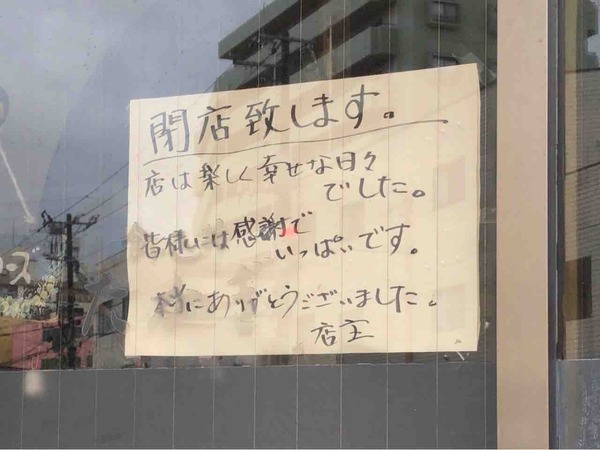 閉店致します。
店は楽しく幸せな日々
でした。
皆様には感謝で
いっぱいです。
本当にありがとうございました。
店主
ース